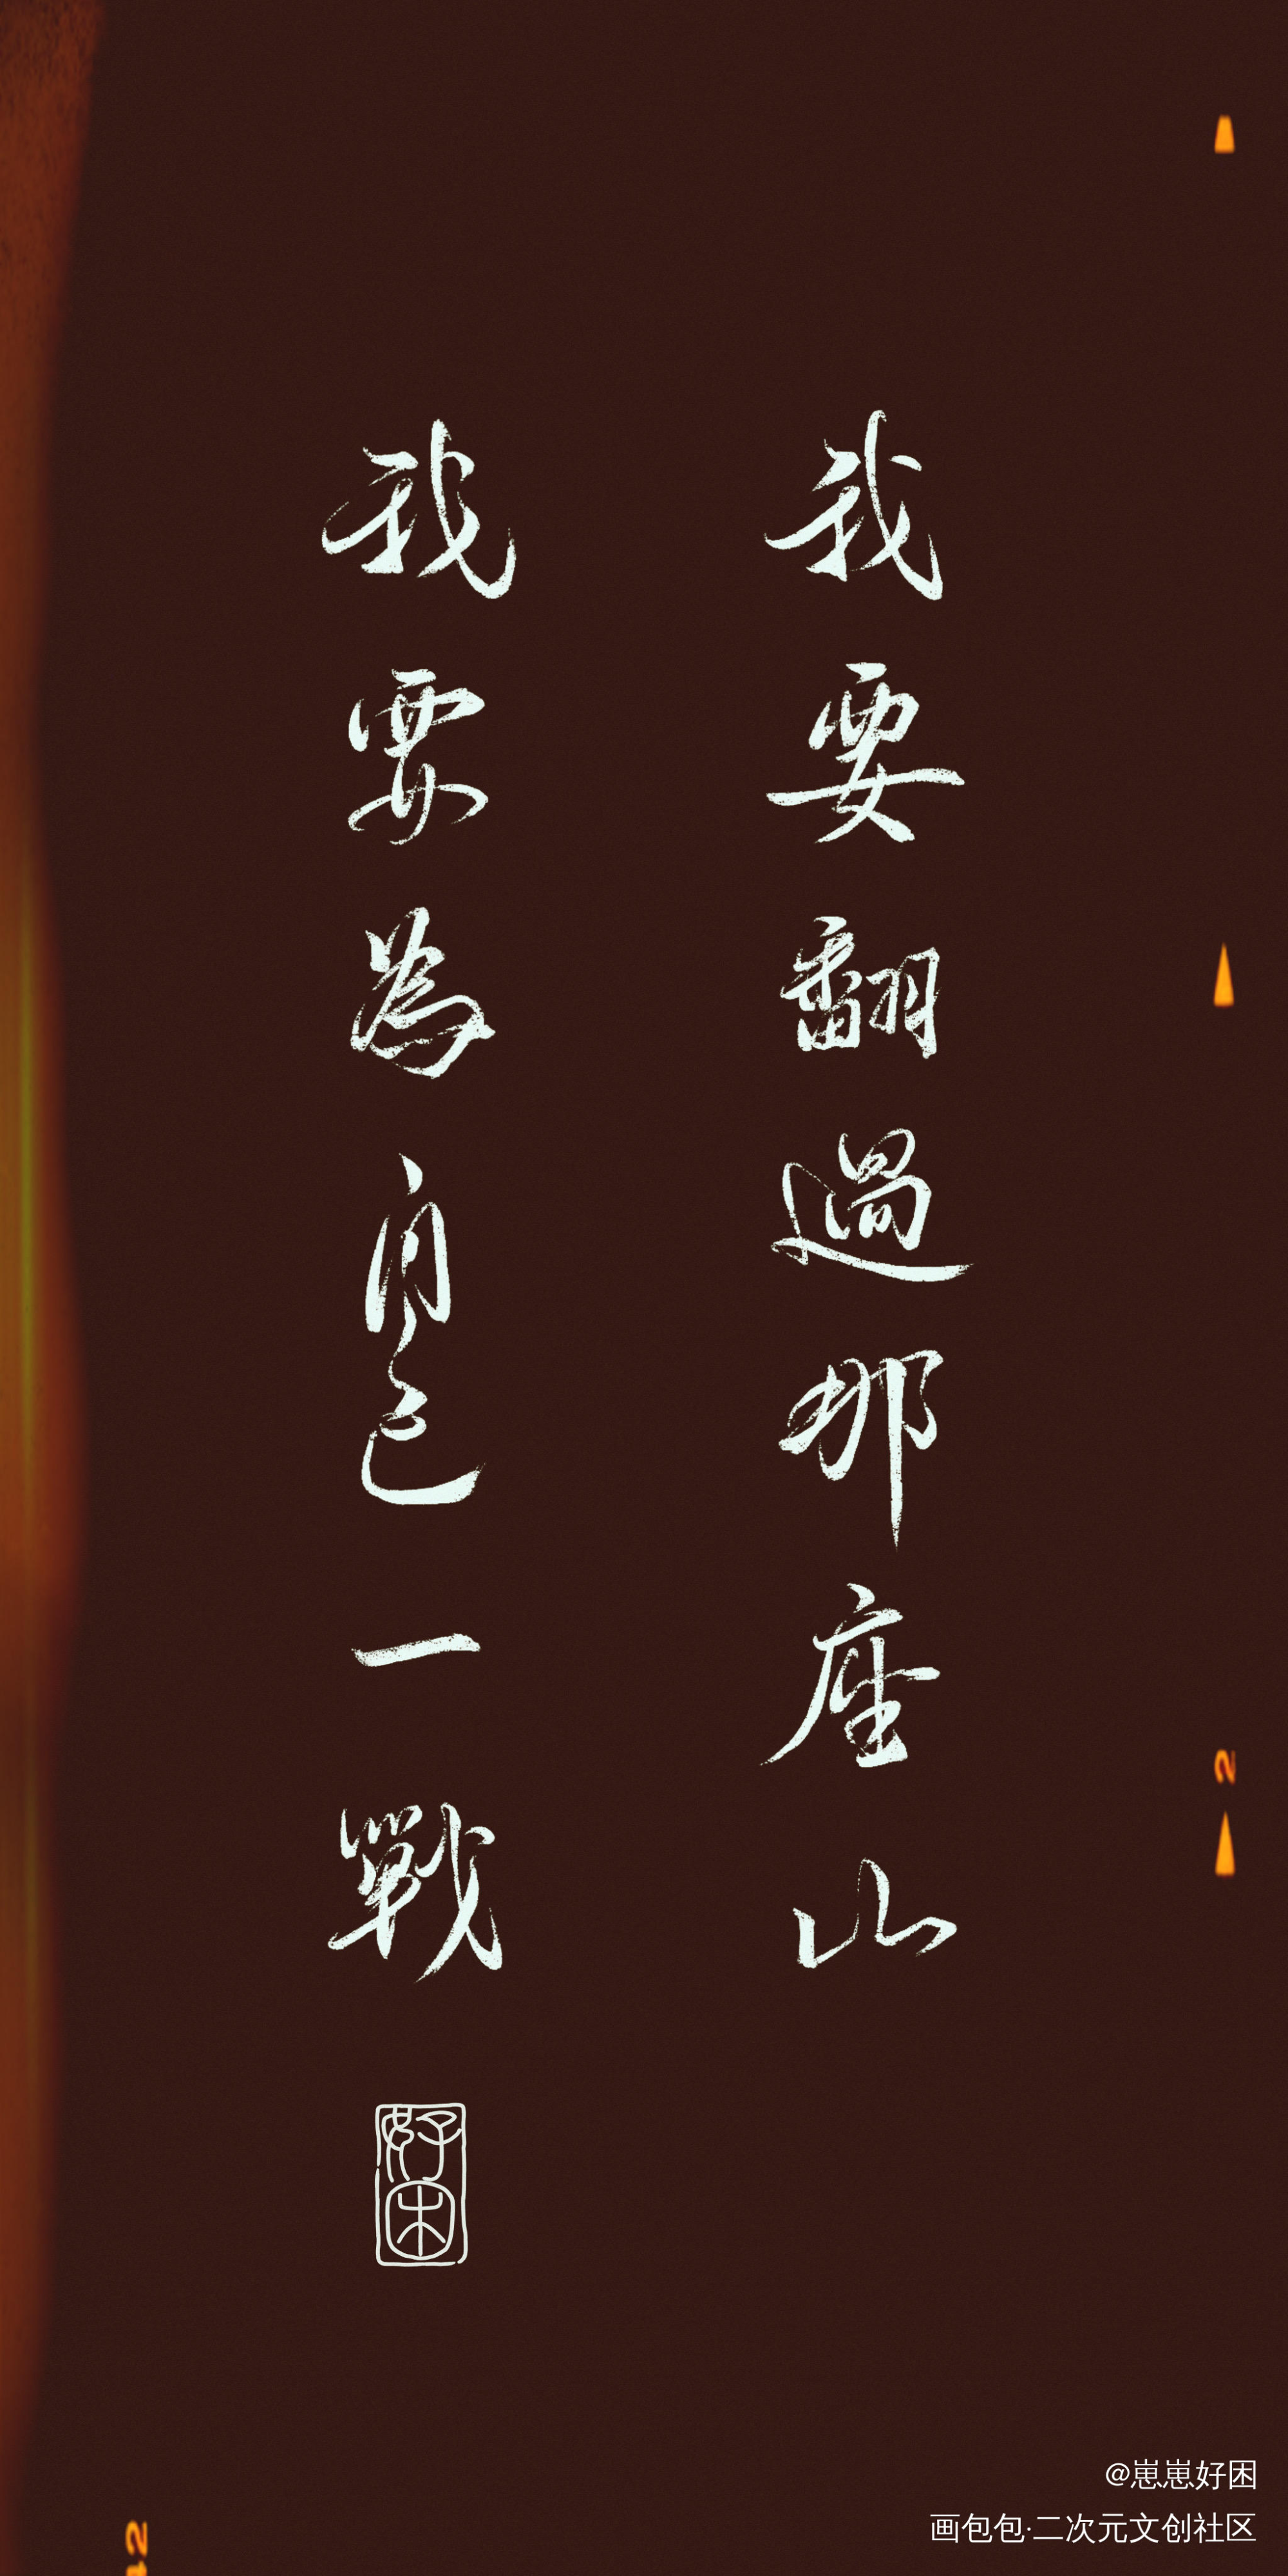 我要翻過那座山
我要為自己一戰
好困
2
12
@崽崽好困
画包包·二次元文创社区